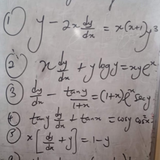 ① y - 2x dy/dx = x(x+1)y³
② x dy/dx + y log y = xyeˣ
③ dy/dx - tan y/(1+x) = (1+x)eˣ sec y
④ tan y dy/dx + tan x = cos y cos²x
⑤ x[dy/dx + y] = 1 - y